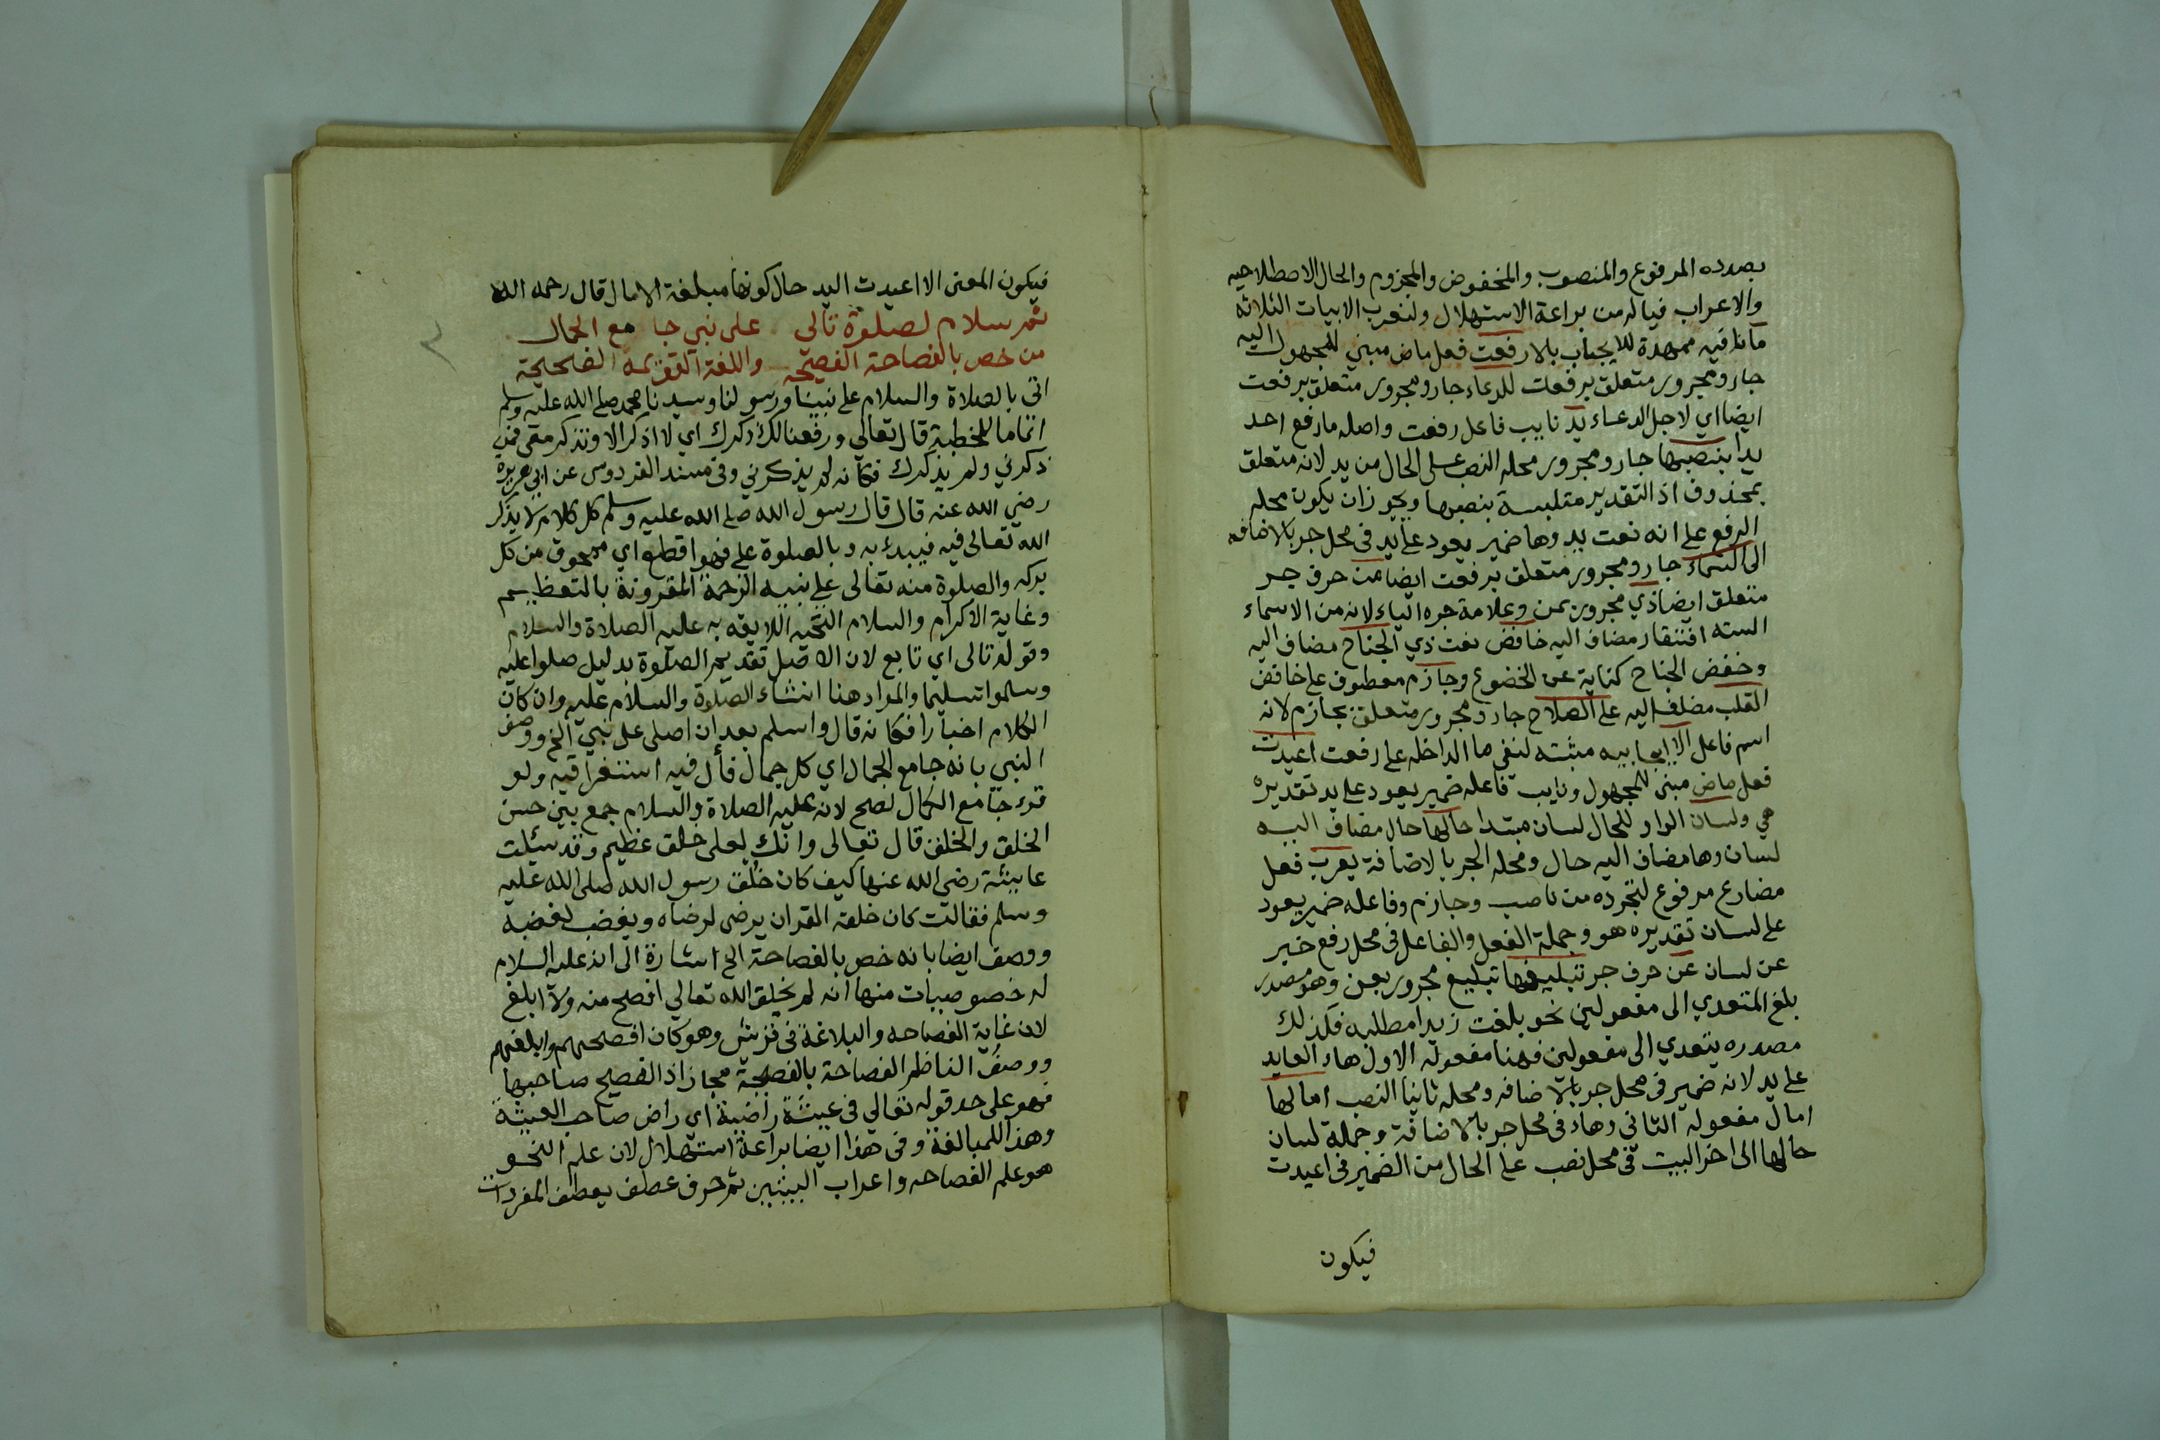 بصدده المرفوع والمنصوب والمخفوض والمجزوم والحال الاصطلاحيه
والاعراب فياله من براعة الاستهلال ولنعرب الابيات الثلاثه
ما نافيه ممهدة للايجاب بالا رفعت فعل ماض مبني للمجهول اليه
جار ومجرور متعلق برفعت للدعاء جار ومجرور متعلق برفعت
ايضا اي لاجل الدعاء يد نايب فاعل رفعت واصله ما رفع احد
يدا بنصبها جار ومجرور محله النصب على الحال من يد لانه متعلق
بمحذوف اذ التقدير متلبسة بنصبها ويجوز ان يكون محله
الرفع على انه نعت يد وها ضمير يعود على يد في محل جر بالاضافه
الى السماء جار ومجرور متعلق برفعت ايضا من حرف جر
متعلق ايضا ذي مجرور بمن وعلامة جره الياء لانه من الاسماء
السته افتقار مضاف اليه خافض نعت ذي الجناح مضاف اليه
وخفض الجناح كناية عن الخضوع وجازم معطوف على خافض
القلب مضاف اليه على الصلاح جار ومجرور متعلق بجازم لانه
اسم فاعل الا ايجابيه مثبته لنفي ما الداخله على رفعت اعيدت
فعل ماض مبني للمجهول ونايب فاعله ضمير يعود على يد تقديره
هي ولسان الواو للحال لسان مبتدا حالها حال مضاف اليه
لسان وها مضاف اليه حال ومحله الجر بالاضافة يعرب فعل
مضارع مرفوع لتجرده من ناصب وجازم وفاعله ضمير يعود
على لسان تقديره هو وجملة الفعل والفاعل في محل رفع خبر
عن لسان عن حرف جر تبليغها تبليغ مجرور بعن وهو مصدر
بلغ المتعدي الى مفعولين نحو بلغت زيدا مطلبه فكذلك
مصدره يتعدي الى مفعولين فهنا مفعوله الاول هاء العايد
على يد لانه ضمير في محل جر بالاضافه ومحله ثانيا النصب امالها
امال مفعوله الثاني وهاء في محل جر بالاضافة وجملة لسان
حالها الى اخر البيت في محل نصب على الحال من الضمير في اعيدت
فيكون
فيكون المعنى الا اعيدت اليد حال كونها مبلغة الامال قال رحمه الله
ثم سلام لصلوة تالي على نبي جامع الجمال
من خص بالفصاحة الفصيحه واللغة القويمة الصحيحة
اتى بالصلاة والسلام على نبينا ورسولنا وسيدنا محمد صلى الله عليه وسلم
اتماما للخطبة قال تعالي ورفعنا لك ذكرك اي لا اذكر الا وتذكر معي فمن
ذكرني ولم يذكرك فكانه لم يذكرني وفي مسند الفردوس عن ابي هريرة
رضي الله عنه قال قال رسول الله صلى الله عليه وسلم كل كلام لا يذكر
الله تعالى فيه فيبدء به وبالصلوة علي فهو اقطع اي ممحوق من كل
بركه والصلوة منه تعالى على نبيه الرحمة المقرونة بالتعظيم
وغاية الاكرام والسلام التحيه اللايقه به عليه الصلاة والسلام
وقوله تالى اي تابع لان الاصل تقديم الصلوة بدليل صلوا عليه
وسلموا تسليما والمراد هنا انشاء الصلوة والسلام عليه وان كان
الكلام اخبارا فكانه قال واسلم بعد ان اصلى على نبي الخ ووصف
النبي بانه جامع الجمال اي كل جمال فأل فيه استغراقيه ولو
قرء جامع الكمال لصح لانه عليه الصلاة والسلام جمع بين حسن
الخلق والخلق قال تعالى وانك لعلى خلق عظيم وقد سئلت
عايشة رضي الله عنها كيف كان خلق رسول الله صلى الله عليه
وسلم فقالت كان خلقه القران يرضى لرضاه ويغضب لغضبه
ووصف ايضا بانه خص بالفصاحة الخ اشارة الى انه عليه السلام
له خصوصيات منها انه لم يخلق الله تعالي افصح منه ولا ابلغ
لان غاية الفصاحه والبلاغة في قريش وهو كان افصحهم وابلغهم
ووصف الناظم الفصاحة بالفصيحة مجاز اذ الفصيح صاحبها
فهو على حد قوله تعالي في عيشة راضية اي راض صاحب العيشة
وهذا للمبالغة وفي هذا ايضا براعة استهلال لان علم النحو
هو علم الفصاحه واعراب البيتين ثم حرف عطف يعطف المفردات